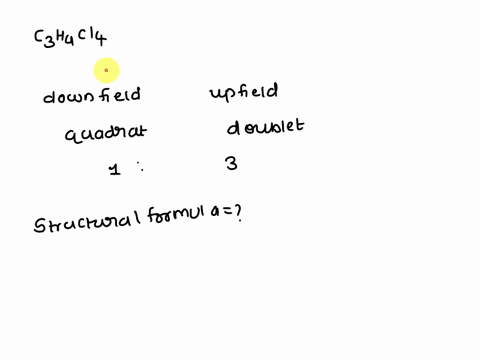 C3H4Cl4
downfield upfield
quadrat doublet
1 : 3
Structural formula=?